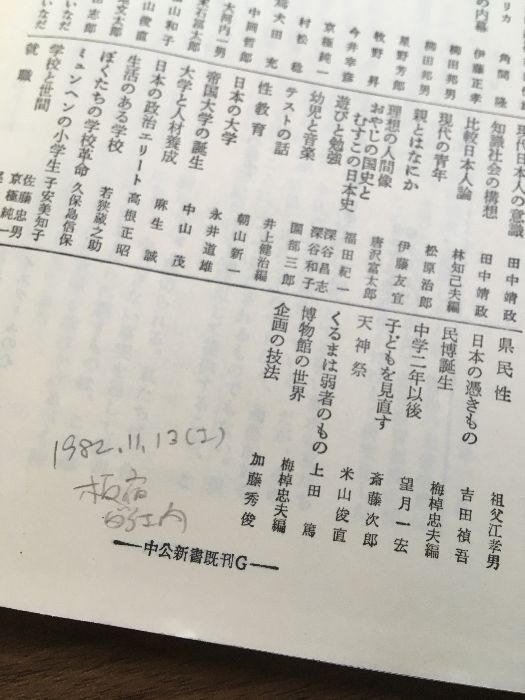 リカ 角間隆
の内幕 伊藤正孝
柳田邦男
柳田邦男
星野芳郎
牧野昇
今井幸彦
京極純一
村松稔
犬田充
中岡哲郎
大河内一男
現代日本人の意識 田中靖政
知識社会の構想 田中靖政
比較日本人論 林知己夫編
現代の青年 松原治郎
親とはなにか 伊藤友宣
理想の人間像 唐沢富太郎
おやじの国史と
むすこの日本史 福田紀一
遊びと勉強 深谷昌志
深谷和子
幼児と音楽 園部三郎
テストの話 井上健治編
性教育 朝山新一
日本の大学 永井道雄
帝国大学の誕生 中山茂
大学と人材養成 麻生誠
日本の政治エリート 高根正昭
生活のある学校 若狭蔵之助
ぼくたちの学校革命 久保島信保
ミュンヘンの小学生 子安美知子
学校と世間 佐藤忠男
就職 京極純一
県民性 祖父江孝男
日本の憑きもの 吉田禎吾
民博誕生 梅棹忠夫編
中学二年以後 望月一宏
子どもを見直す 斎藤次郎
天神祭 米山俊直
くるまは弱者のもの 上田篤
博物館の世界 梅棹忠夫編
企画の技法 加藤秀俊
1982.11.13(土)
板宿
中公新書既刊G